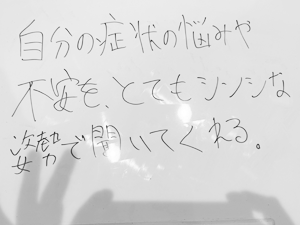 自分の症状の悩みや
不安を、とてもシンシな
姿勢で聞いてくれる。